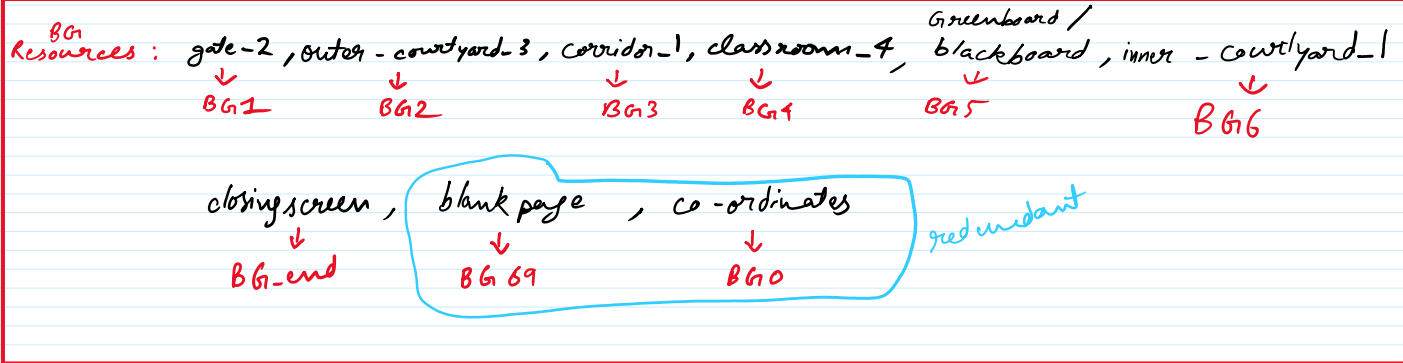 BG
Greenboard /
Resources : gate-2 , outer - courtyard-3 , corridor_1 , classroom_4 , blackboard , inner - courtyard_1
↓ ↓ ↓ ↓ ↓ ↓
BG1 BG2 BG3 BG4 BG5 BG6
closing screen , blank page , co-ordinates
redundant
↓ ↓ ↓
BG_end BG 69 BG0